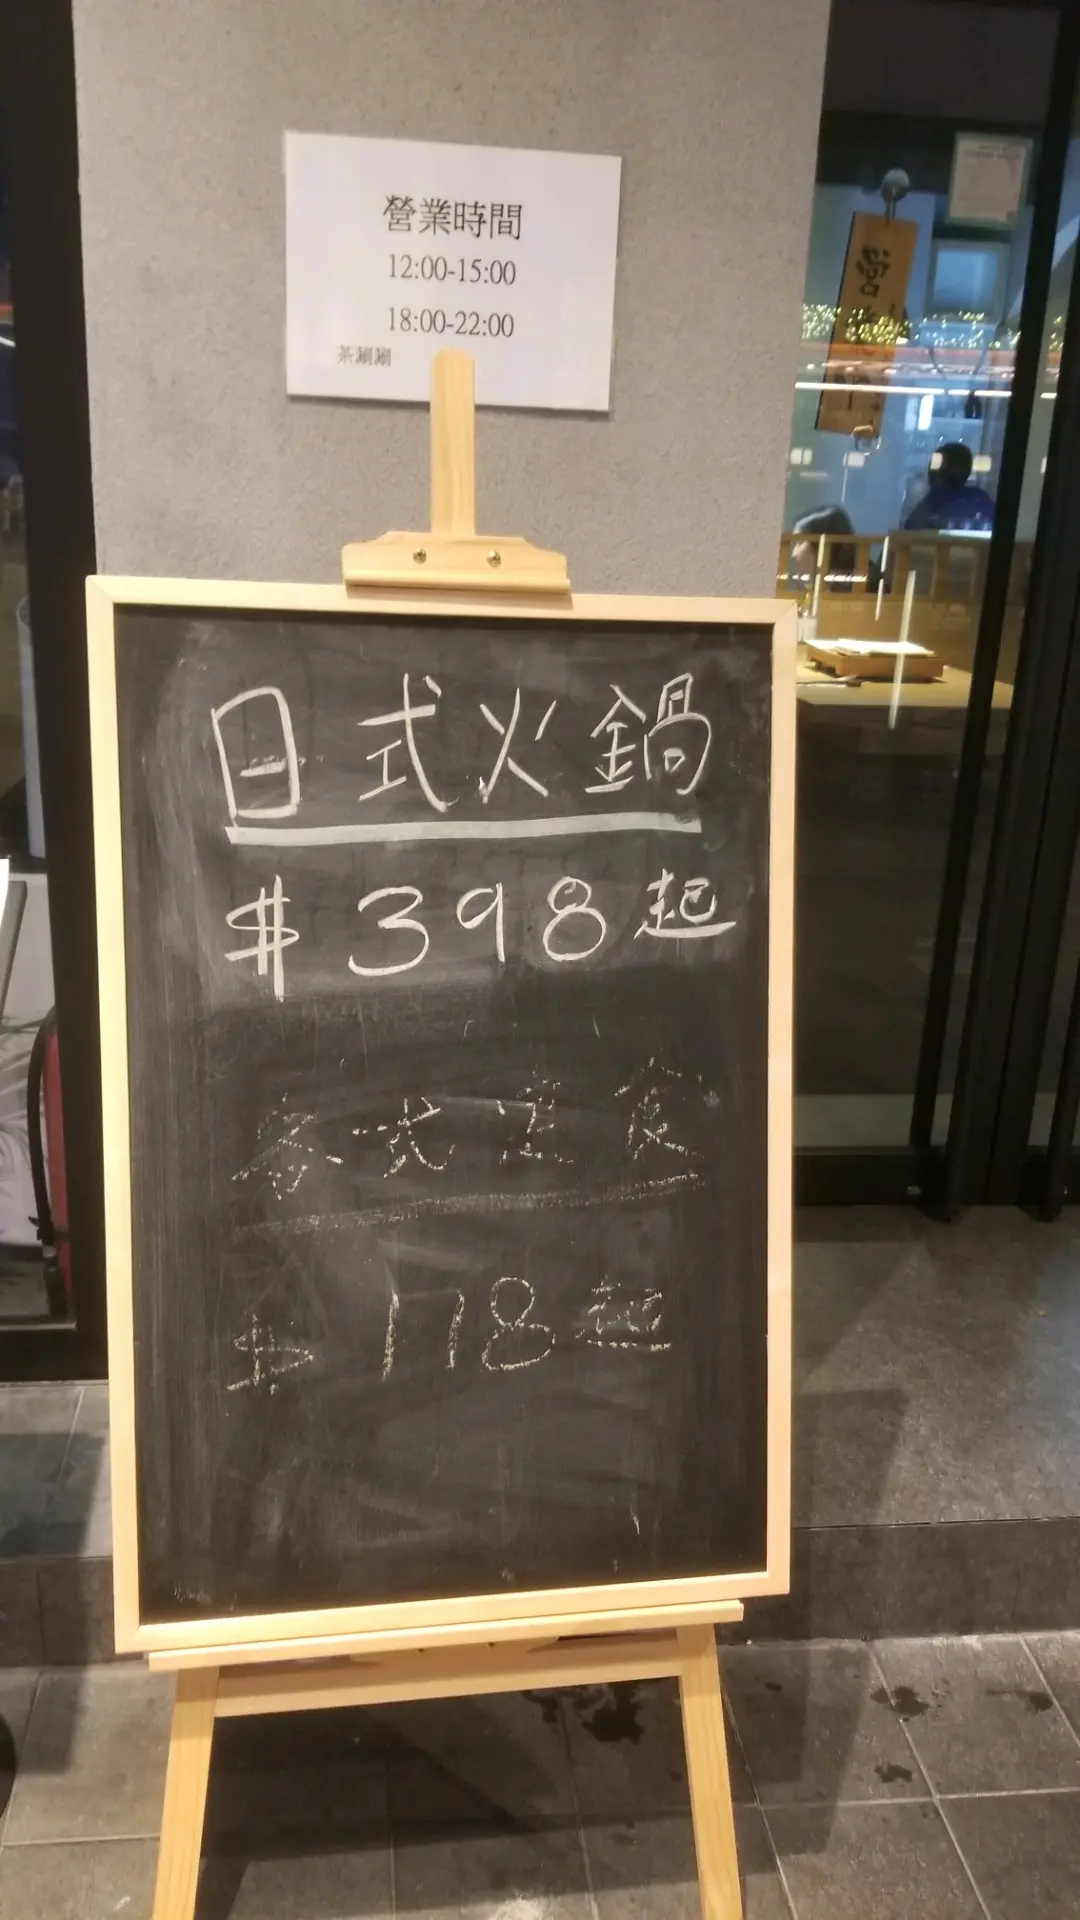 營業時間
12:00-15:00
18:00-22:00
茶涮涮
營
日式火鍋
$398起
各式定食
$118起